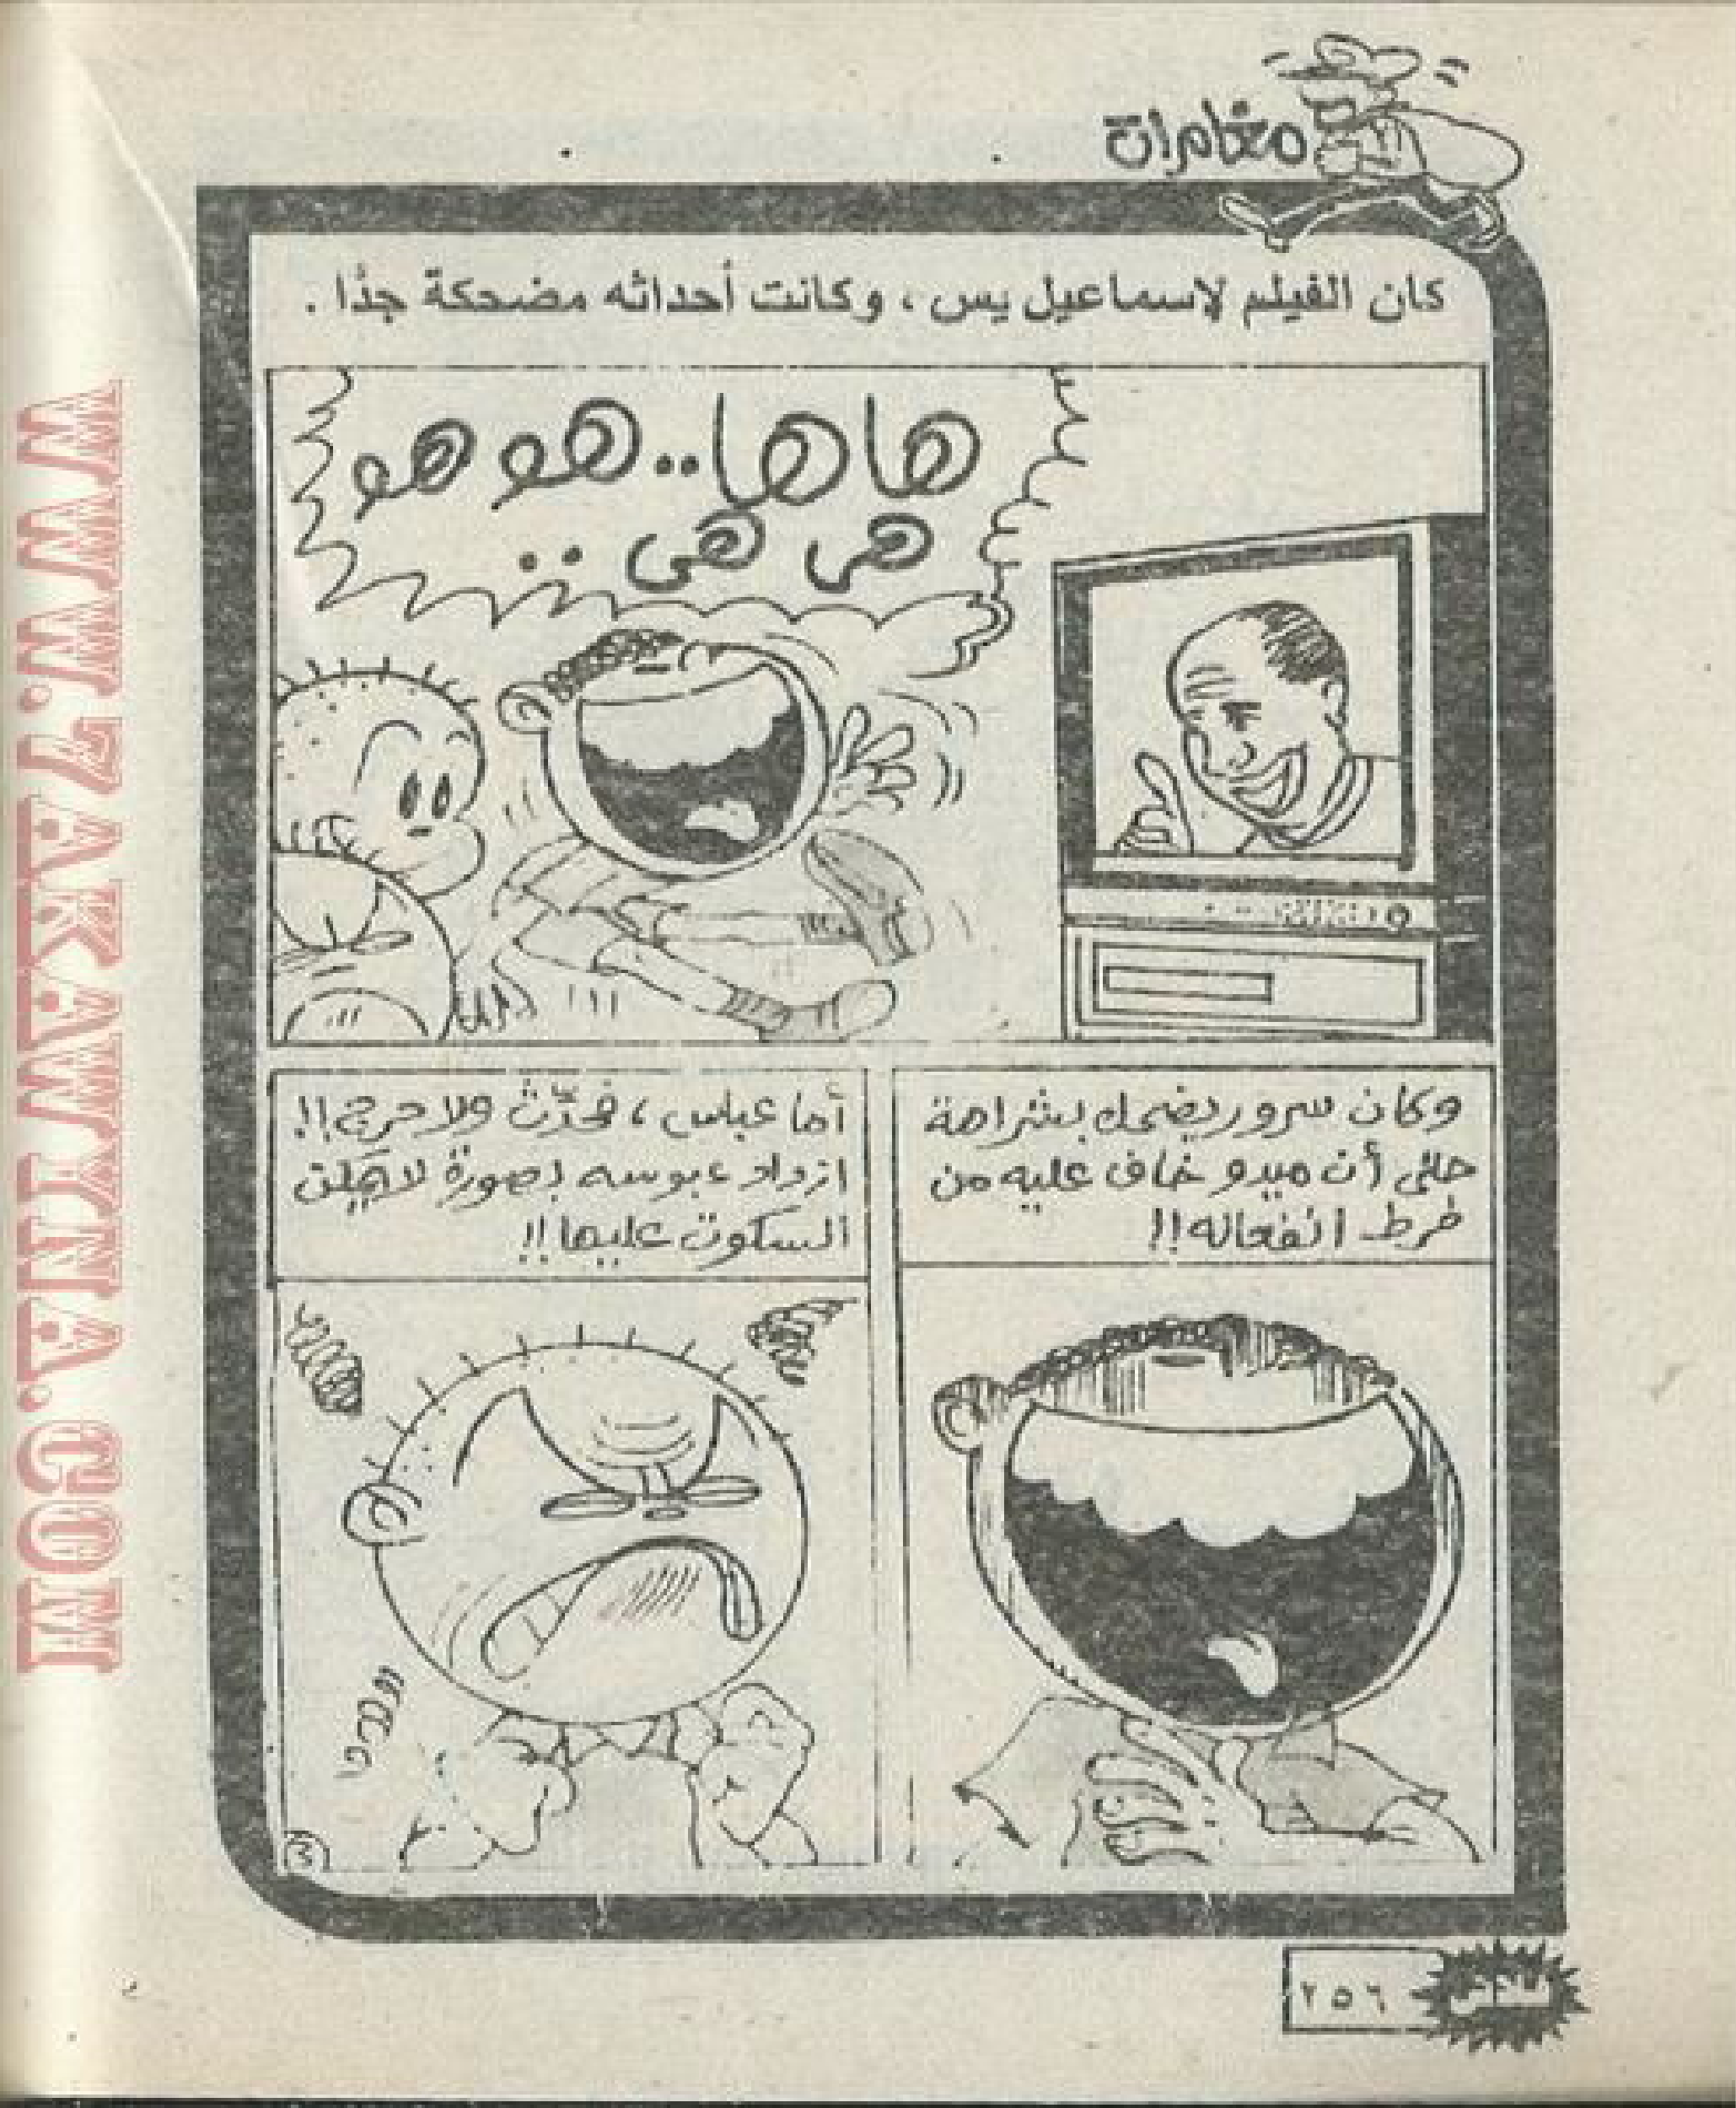 مغامرات
كان الفيلم لاسماعيل يس ، وكانت أحداثه مضحكة جدًا .
هاها..هوهو
هى هى ..
وكان سرور يضحك بشراهة
حتى أن ميدو خاف عليه من
فرط انفعاله!!
أما عباس ، فحدّث ولا حرج!!
ازداد عبوسه بصورة لا يمكن
السكوت عليها!!
٣
٢٥٦
WWW.7AKAWTINA.COM